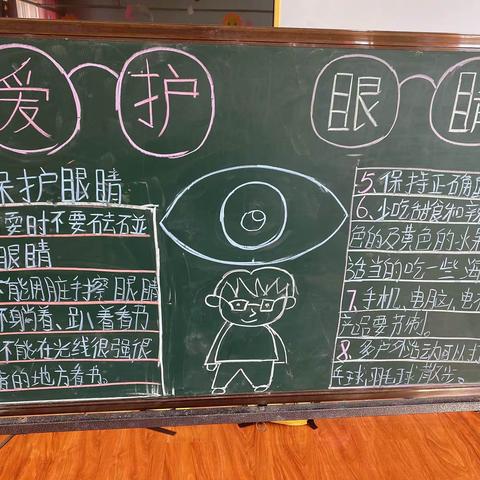 爱护 眼睛
保护眼睛
耍时不要去碰
眼睛
不能用脏手擦眼睛
不躺着、趴着看书
不能在光线很强很
的地方看书。
5、保持正确
6、少吃甜食和辛
色的及黄色的水果
适当的吃一些海
7、手机、电脑、电
产品要节制。
8、多户外活动可以打
乒球,羽毛球散步。